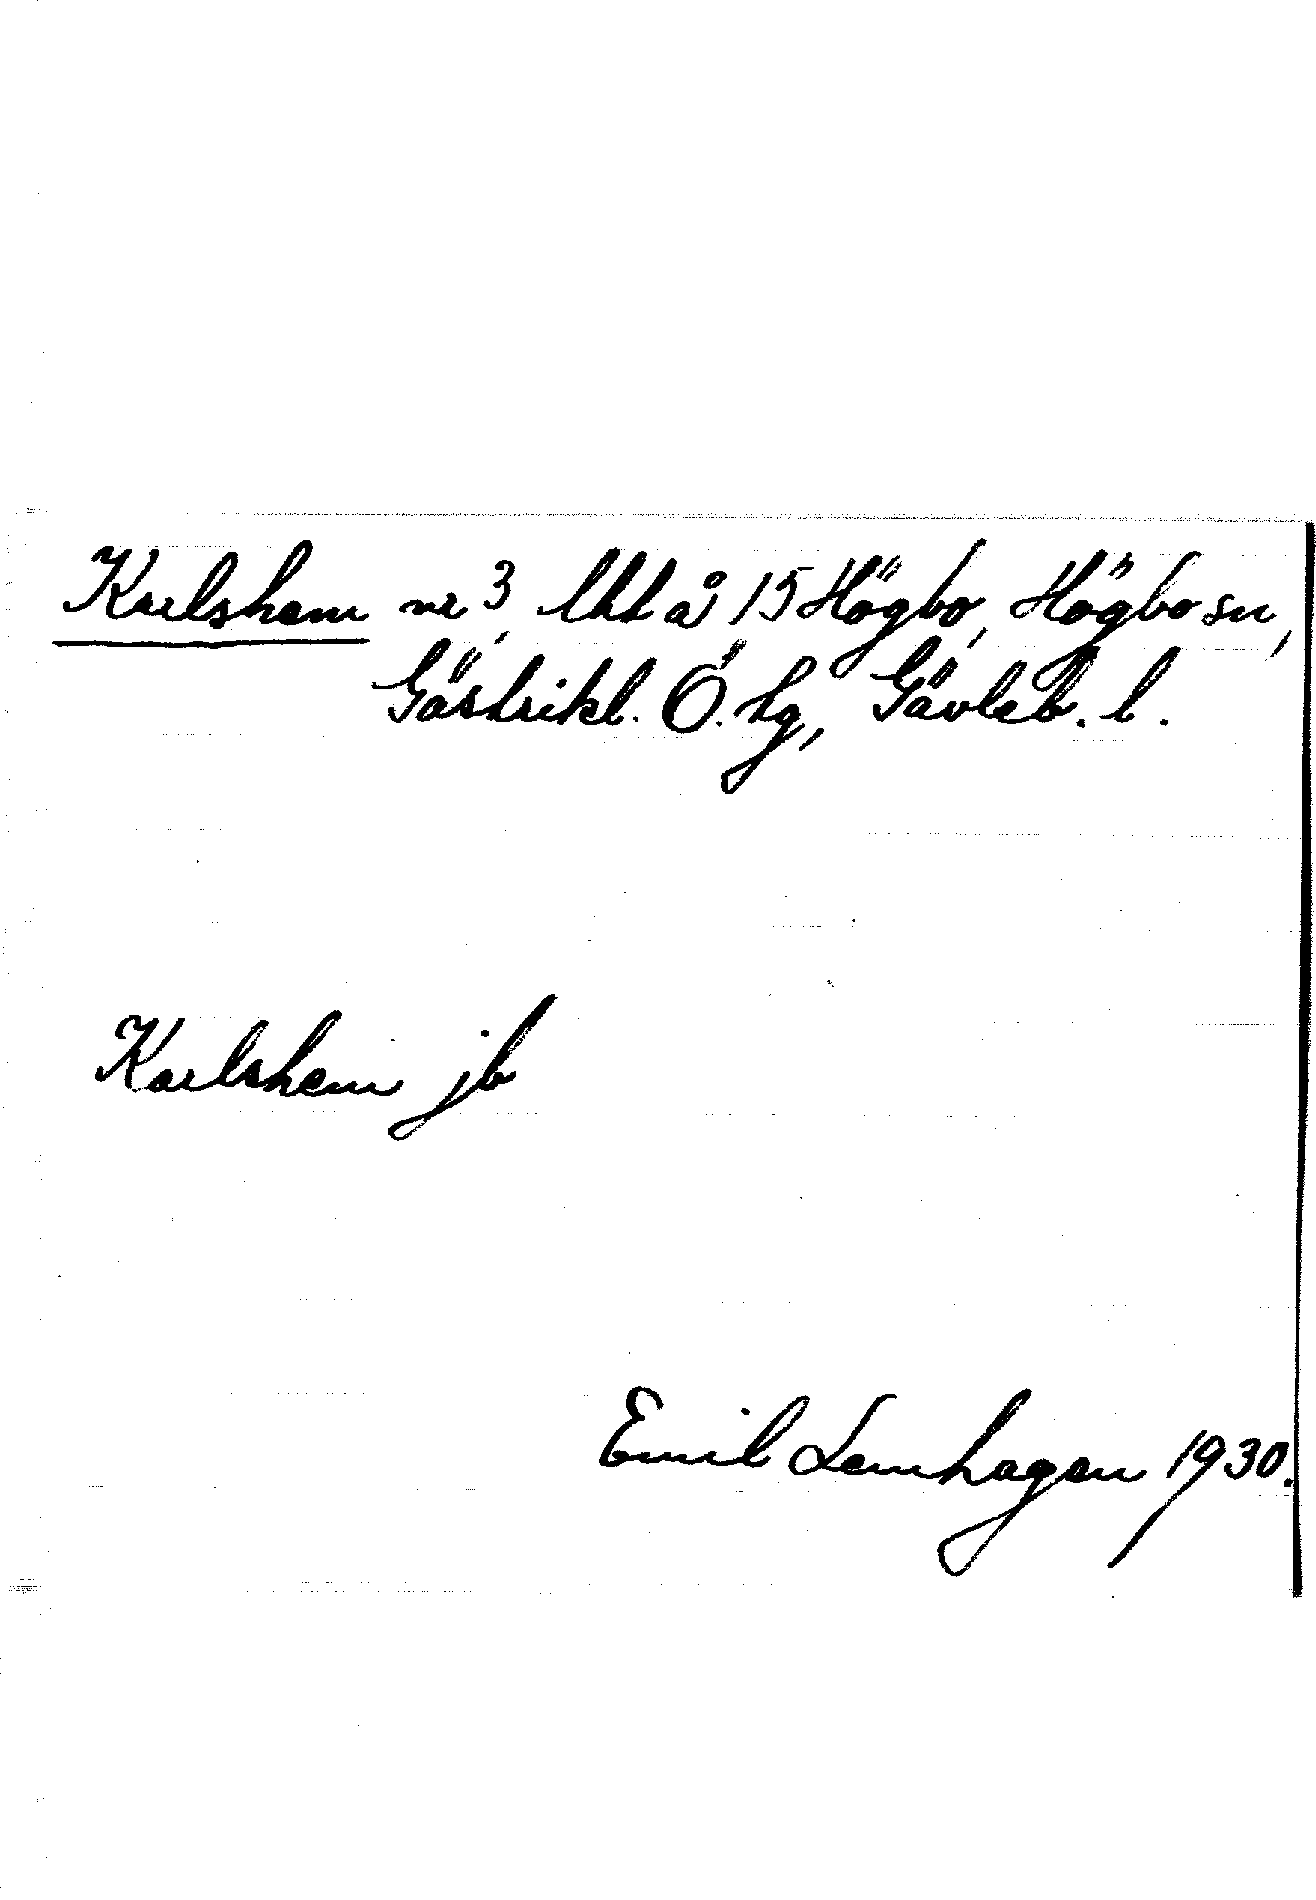 Karlshem nr 3, lht å 15 Högbo, Högbo sn,
Gästrikl. Ö. hg, Gävleb. l.
Karlshem jb
Emil Lennhagen 1930.